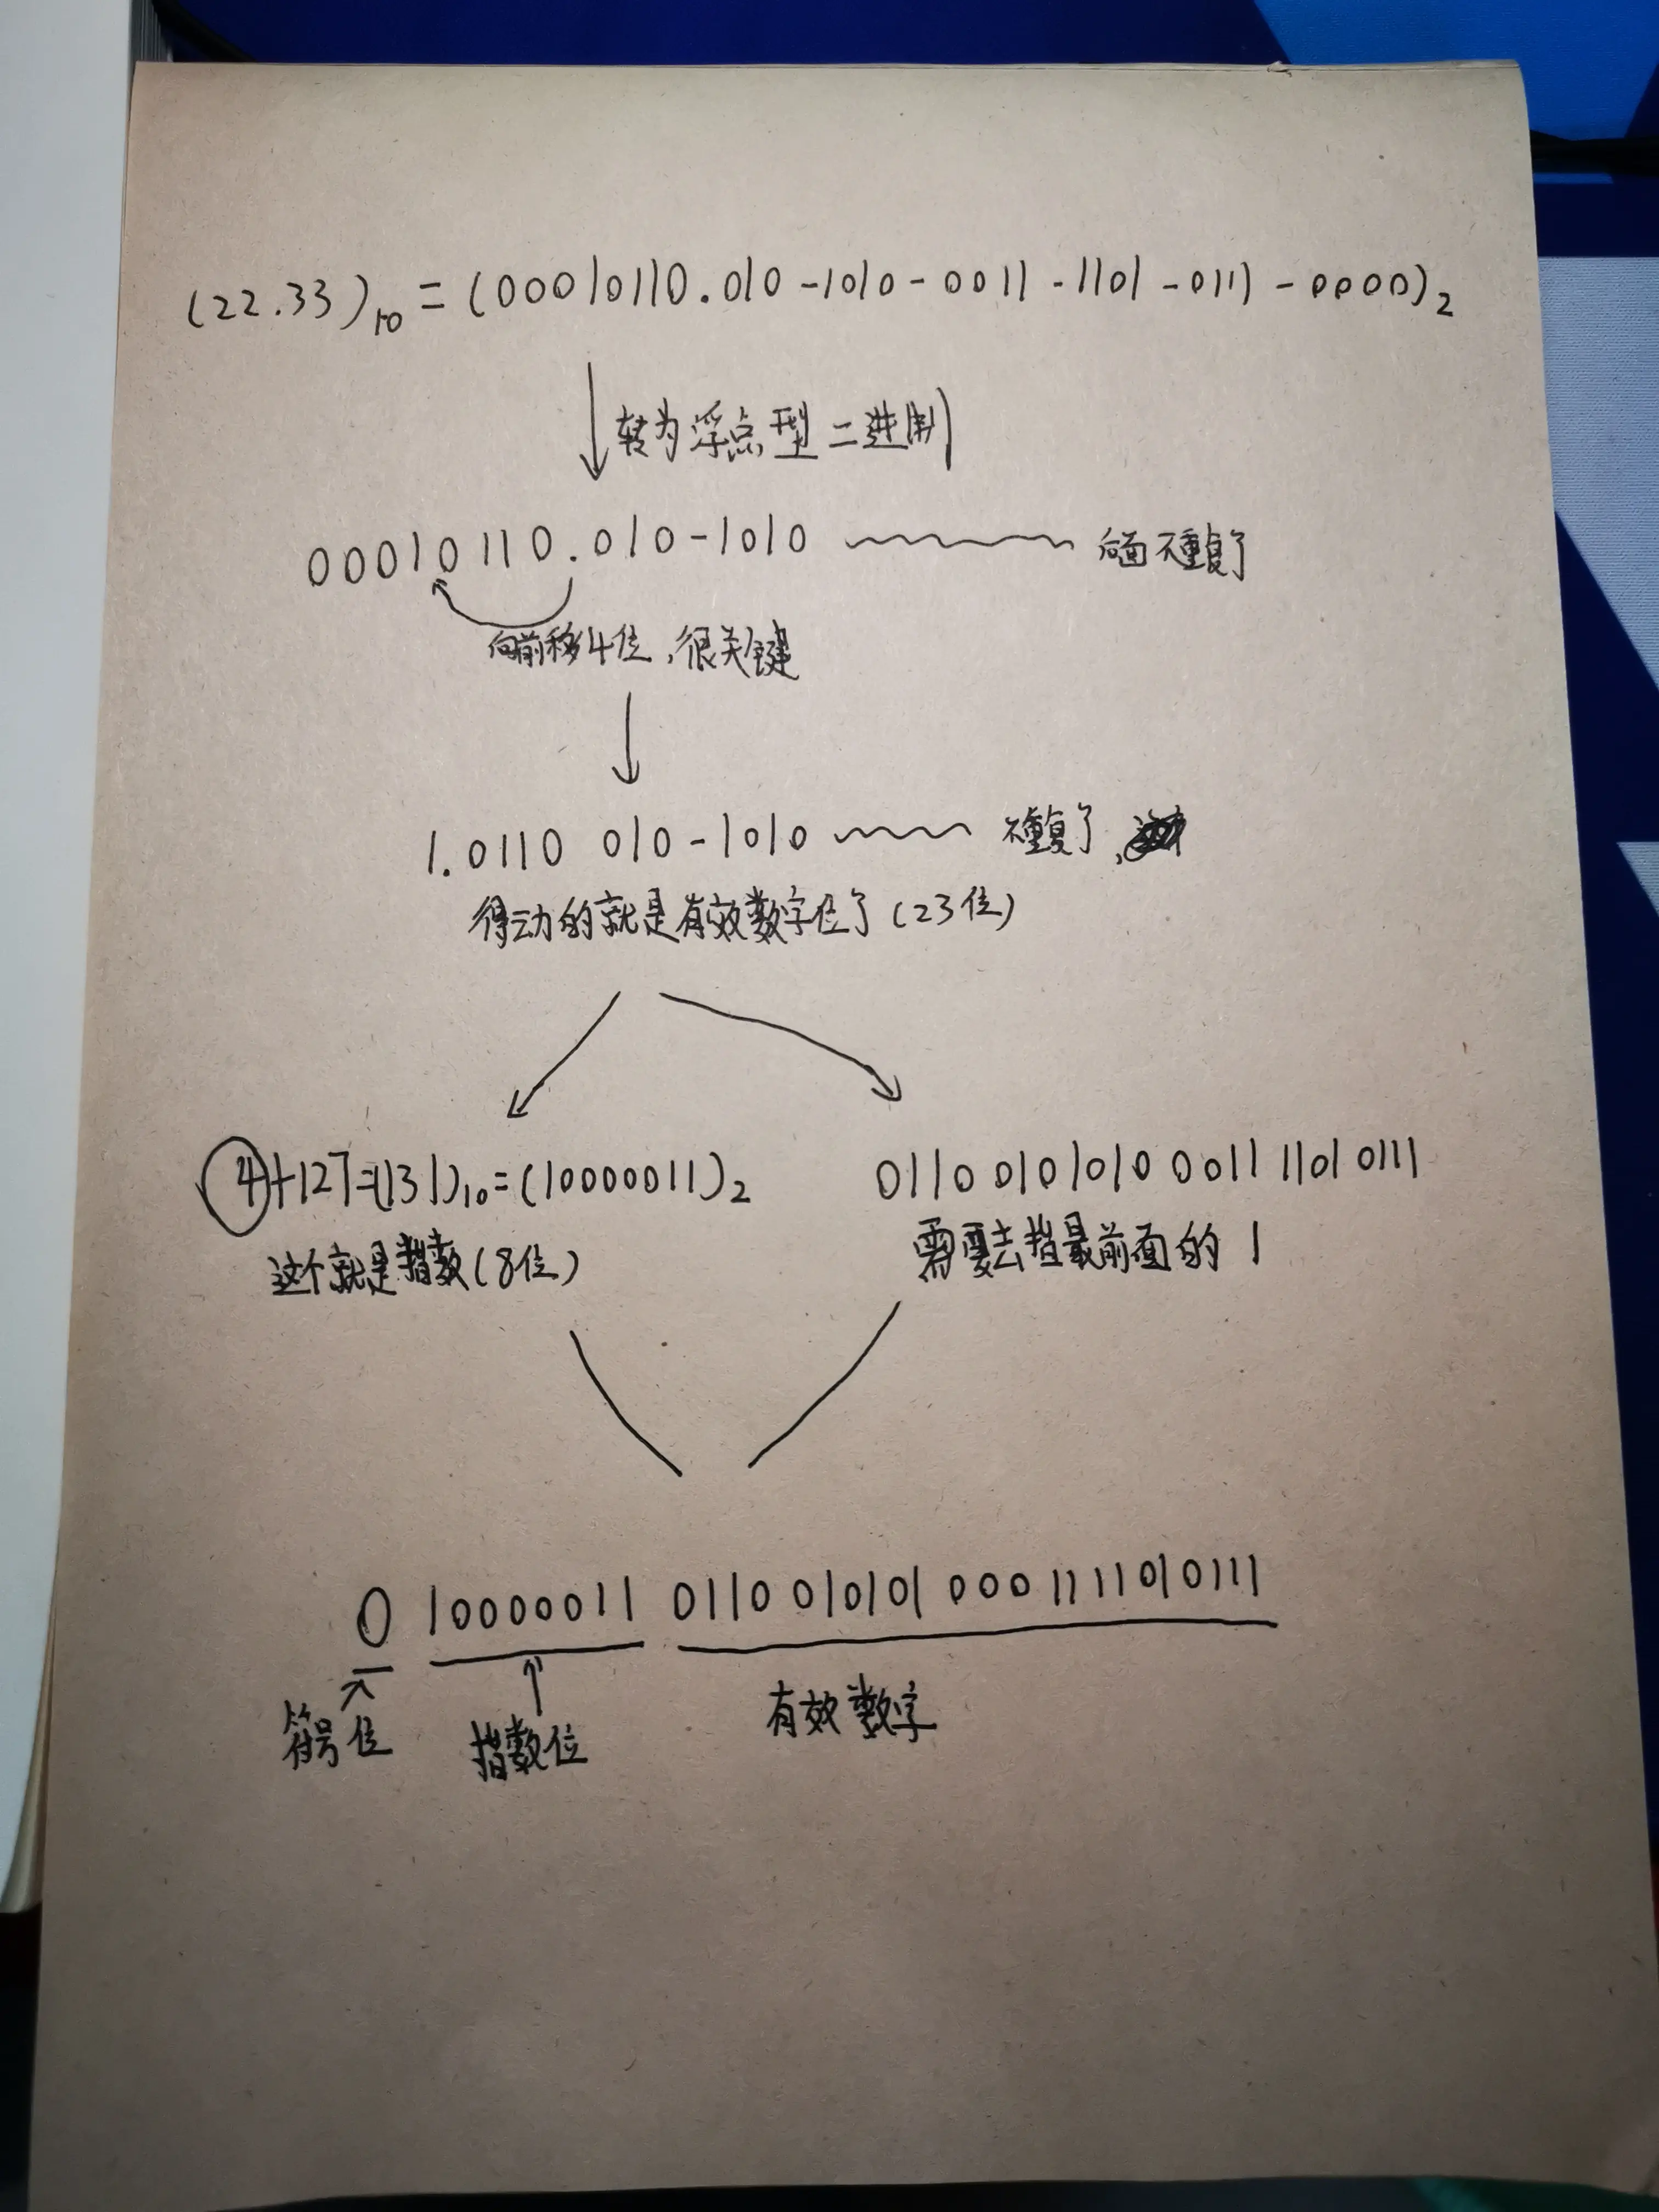 (22.33)₁₀ = (00010110.010-1010-0011-1101-0111-0000)₂
转为浮点型二进制
00010110.010-1010 后面不重复了
向前移4位,很关键
1.0110 010-1010 不重复了,
得到的就是有效数字位了(23位)
4+127=(131)₁₀=(10000011)₂
0110 010 1010 0011 1101 0111
这个就是指数(8位)
需要去掉最前面的1
0 10000011 0110 01010100011 11010111
符号位
指数位
有效数字